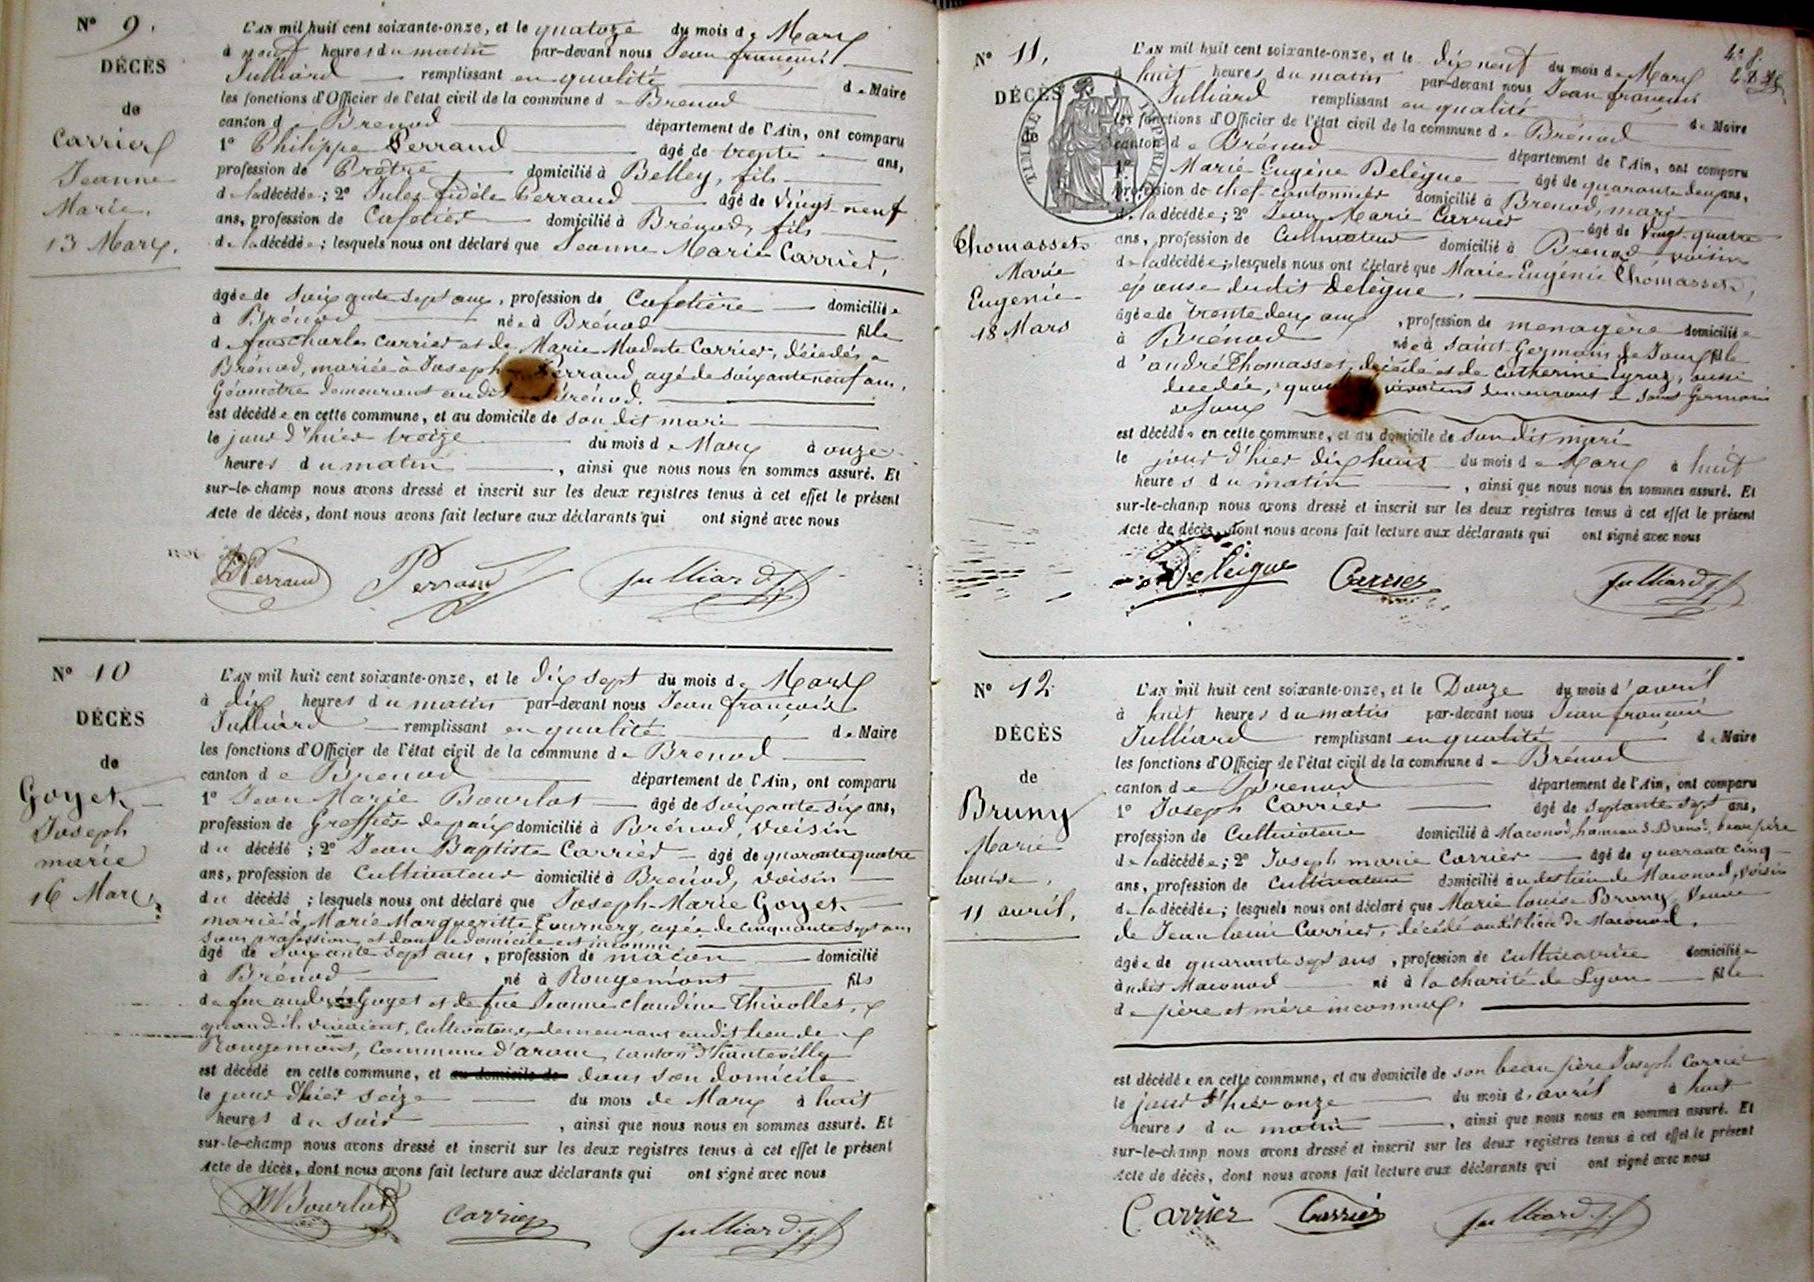 N° 9.
DÉCÈS
de
Carrier
Jeanne
Marie.
13 Mars.
L'AN mil huit cent soixante-onze, et le quatorze du mois de Mars
à neuf heures du matin par-devant nous Jean françois
Julliard remplissant en qualité de Maire
les fonctions d'Officier de l'état civil de la commune de Brenod
canton de Brenod département de l'Ain, ont comparu
1° Philippe Perraud âgé de trente ans,
profession de Prêtre domicilié à Belley, fils
de la décédée; 2° Jules fidèle Perraud âgé de vingt-neuf
ans, profession de Cafetier domicilié à Brénod, fils
de la décédée; lesquels nous ont déclaré que Jeanne Marie Carrier,
âgée de soixante sept ans, profession de Cafetière domiciliée
à Brénod née à Brénod fille
de feus Charles Carrier et de Marie Modeste Carrier, décédés à
Brénod, mariée à Joseph Perraud, agé de soixante neuf ans,
Géomètre demeurant audit Brénod.
est décédée en cette commune, et au domicile de son dit mari
le jour d'hier treize du mois de Mars à onze
heures du matin, ainsi que nous nous en sommes assuré. Et
sur-le-champ nous avons dressé et inscrit sur les deux registres tenus à cet effet le présent
acte de décès, dont nous avons fait lecture aux déclarants qui ont signé avec nous
Perraud Perraud Julliard
N° 10
DÉCÈS
de
Goyet
Joseph
marie
16 Mars
L'AN mil huit cent soixante-onze, et le dix sept du mois de Mars
à dix heures du matin par-devant nous Jean françois
Julliard remplissant en qualité de Maire
les fonctions d'Officier de l'état civil de la commune de Brenod
canton de Brenod département de l'Ain, ont comparu
1° Jean Marie Bourlot âgé de soixante six ans,
profession de Greffier de paix domicilié à Brénod, voisin
du décédé; 2° Jean Baptiste Carrier âgé de quarante quatre
ans, profession de Cultivateur domicilié à Brénod, voisin
du décédé; lesquels nous ont déclaré que Joseph-Marie Goyet
marié à Marie Margueritte Tournery, agée de cinquante sept ans
sans profession et dont le domicile est inconnu
âgé de soixante sept ans, profession de maçon domicilié
à Brénod né à Rougemont fils
de feu andré Goyet et de fue Jeanne claudine Thivolles,
quand ils vivaient, cultivateurs, demeurans audit lieu de
Rougemont, commune d'aranc, canton d'hauteville
est décédé en cette commune, et au domicile de dans son domicile
le jour d'hier seize du mois de Mars à huit
heures du soir, ainsi que nous nous en sommes assuré. Et
sur-le-champ nous avons dressé et inscrit sur les deux registres tenus à cet effet le présent
acte de décès, dont nous avons fait lecture aux déclarants qui ont signé avec nous
JM Bourlot Carrier Julliard
N° 11.
DÉCÈS
de
Thomasset
Marie
Eugenie
18 Mars
TIMBRE IMPERIAL
L'AN mil huit cent soixante-onze, et le dix neuf du mois de Mars
à huit heures du matin par-devant nous Jean françois
Julliard remplissant en qualité de Maire
les fonctions d'Officier de l'état civil de la commune de Brénod
canton de Brénod département de l'Ain, ont comparu
1° Marie Eugène Deleigue âgé de quarante deux ans,
profession de chef cantonnier domicilié à Brenod, mari
de la décédée; 2° Jean Marie Carrier âgé de vingt-quatre
ans, profession de Cultivateur domicilié à Brenod voisin
de la décédée; lesquels nous ont déclaré que Marie Eugenie Thomasset,
épouse dudit Deleigue,
âgée de trente deux ans, profession de menagère domiciliée
à Brénod née à Saint Germain de Joux fille
d'andré Thomasset, décédé et de Catherine Eyraz, aussi
decedée, vivaient demeurant à Saint Germain
de Joux
est décédée en cette commune, et au domicile de son dit mari
le jour d'hier dix huit du mois de Mars à huit
heures du matin, ainsi que nous nous en sommes assuré. Et
sur-le-champ nous avons dressé et inscrit sur les deux registres tenus à cet effet le présent
acte de décès, dont nous avons fait lecture aux déclarants qui ont signé avec nous
Deleigue Carrier Julliard
N° 12
DÉCÈS
de
Bruny
Marie
louise,
11 avril.
L'AN mil huit cent soixante-onze, et le Douze du mois d'avril
à huit heures du matin par-devant nous Jean françois
Julliard remplissant en qualité de Maire
les fonctions d'Officier de l'état civil de la commune de Brénod
canton de Brenod département de l'Ain, ont comparu
1° Joseph Carrier âgé de septante sept ans,
profession de Cultivateur domicilié à Maconod, hameau d. Brenod, beau père
de la décédée; 2° Joseph marie Carrier âgé de quarante cinq
ans, profession de Cultivateur domicilié audit lieu de Maconod, voisin
de la décédée; lesquels nous ont déclaré que Marie louise Bruny, veuve
de Jean louis Carrier, décédé audit lieu de Maconod.
âgée de quarante sept ans, profession de cultivatrice domiciliée
audit Maconod né à la charité de Lyon fille
de père et mère inconnus.
est décédée en cette commune, et au domicile de son beau père Joseph Carrier
le jour d'hier onze du mois d'avril à huit
heures du matin, ainsi que nous nous en sommes assuré. Et
sur-le-champ nous avons dressé et inscrit sur les deux registres tenus à cet effet le présent
acte de décès, dont nous avons fait lecture aux déclarants qui ont signé avec nous
Carrier Carrier Julliard